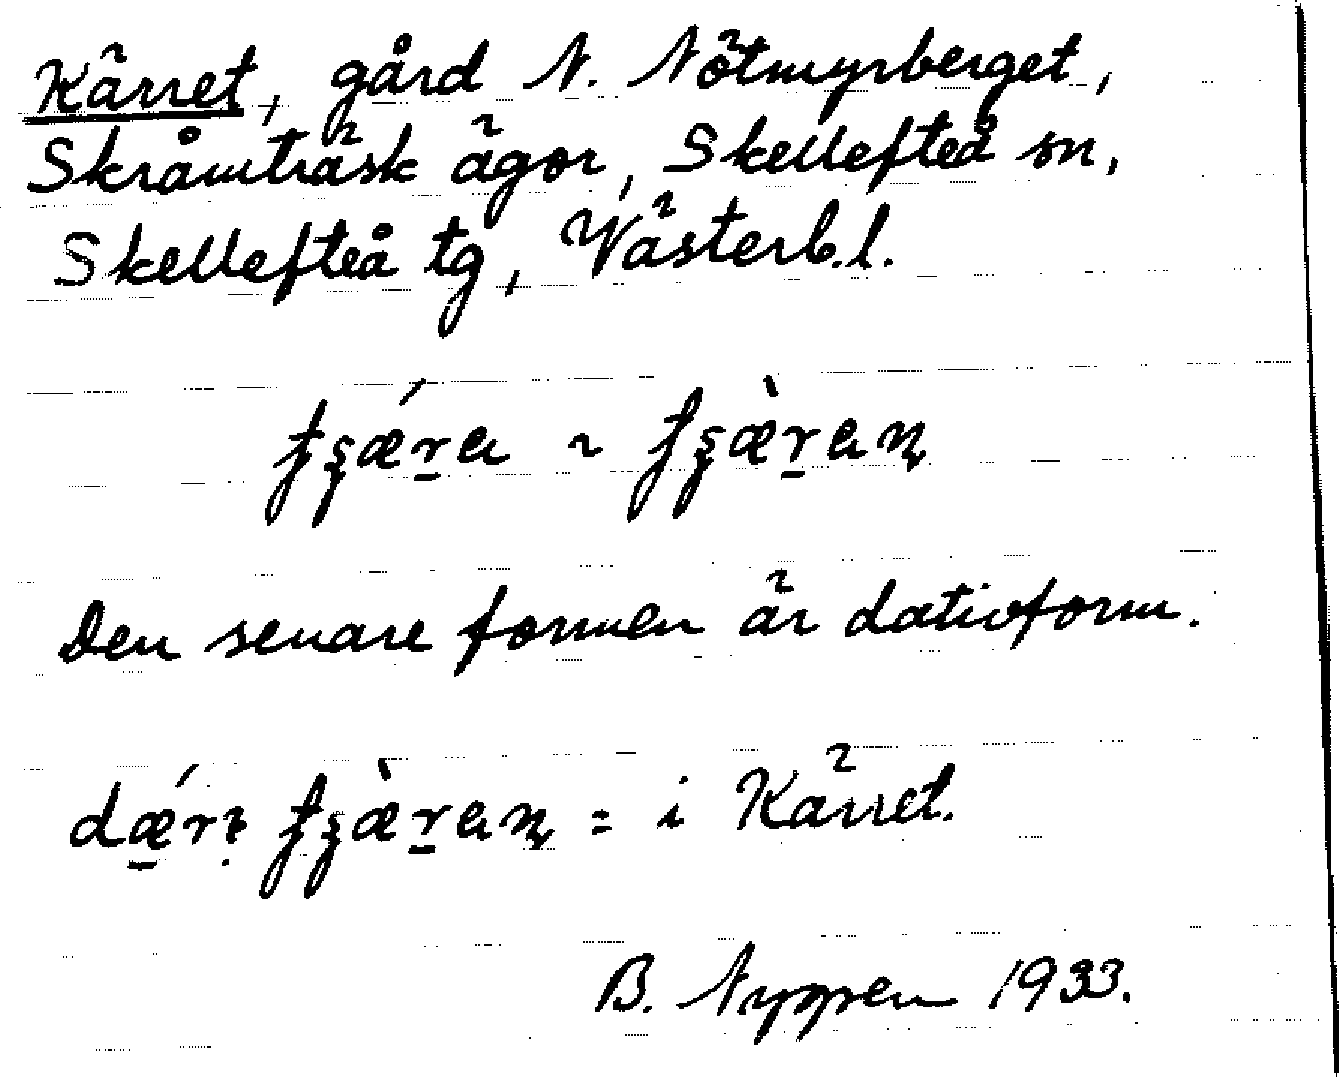 Kärret, gård N. Nötmyrberget,
Skråmträsk ägor, Skellefteå sn,
Skellefteå tg, Västerb.l.
tʂǽra ~ tʂæ̀raɳ
Den senare formen är dativform.
dǽr tʂæ̀raɳ = i Kärret.
B. Nygren 1933.